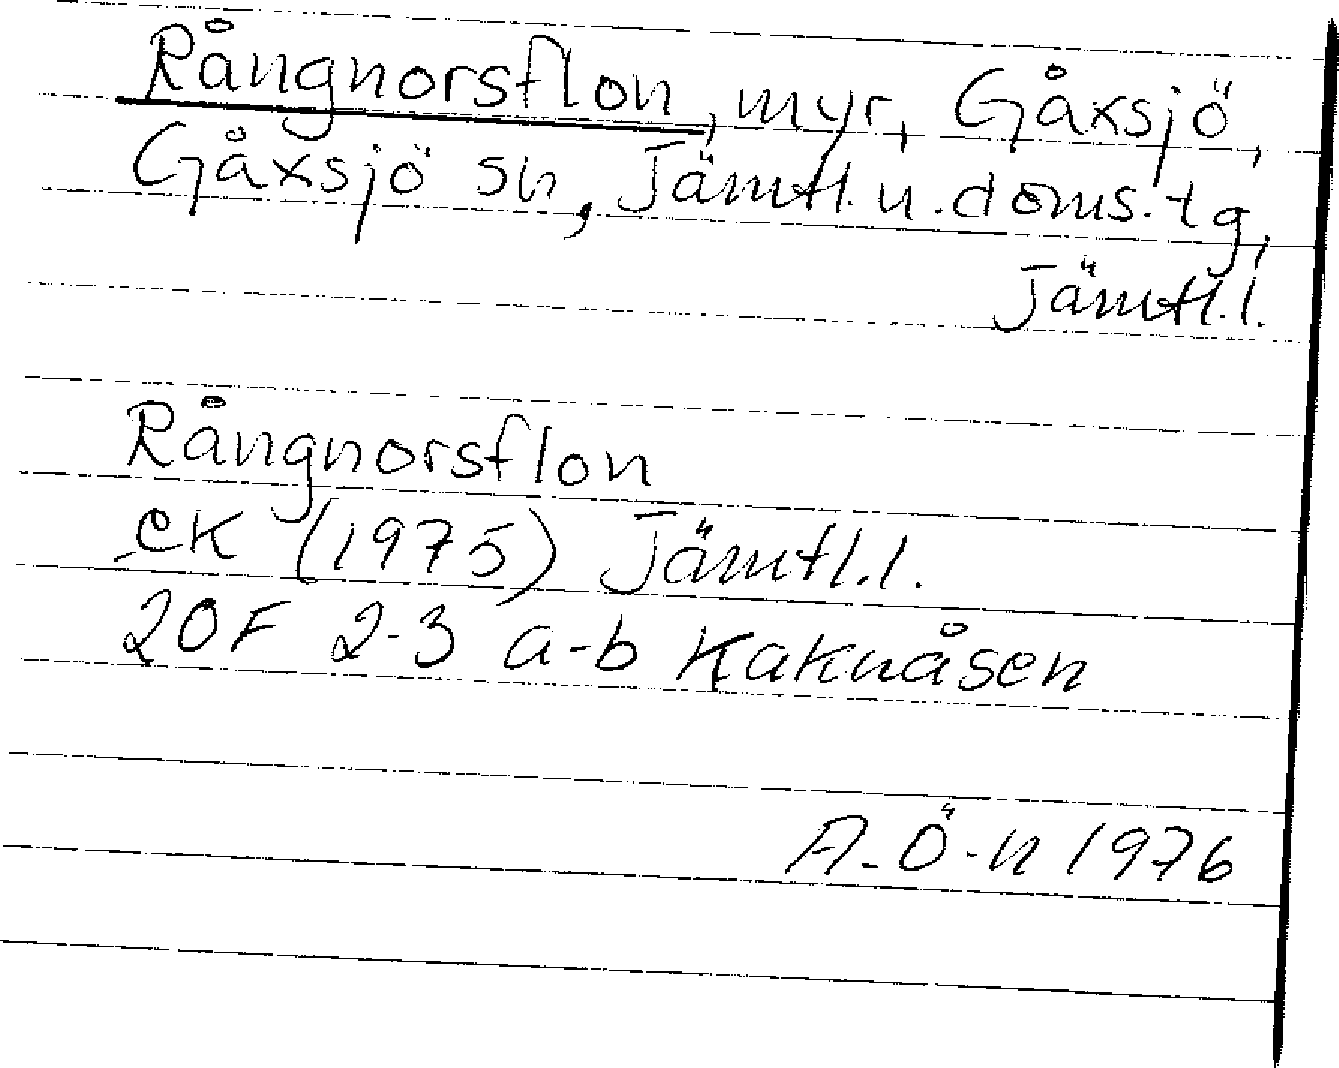 Rångnorsflon, myr, Gåxsjö,
Gåxsjö sn, Jämtl. n. doms. tg,
Jämtl. l.
Rångnorsflon
EK (1975) Jämtl. l.
20F 2-3 a-b Kaknåsen
A-Ö-n 1976